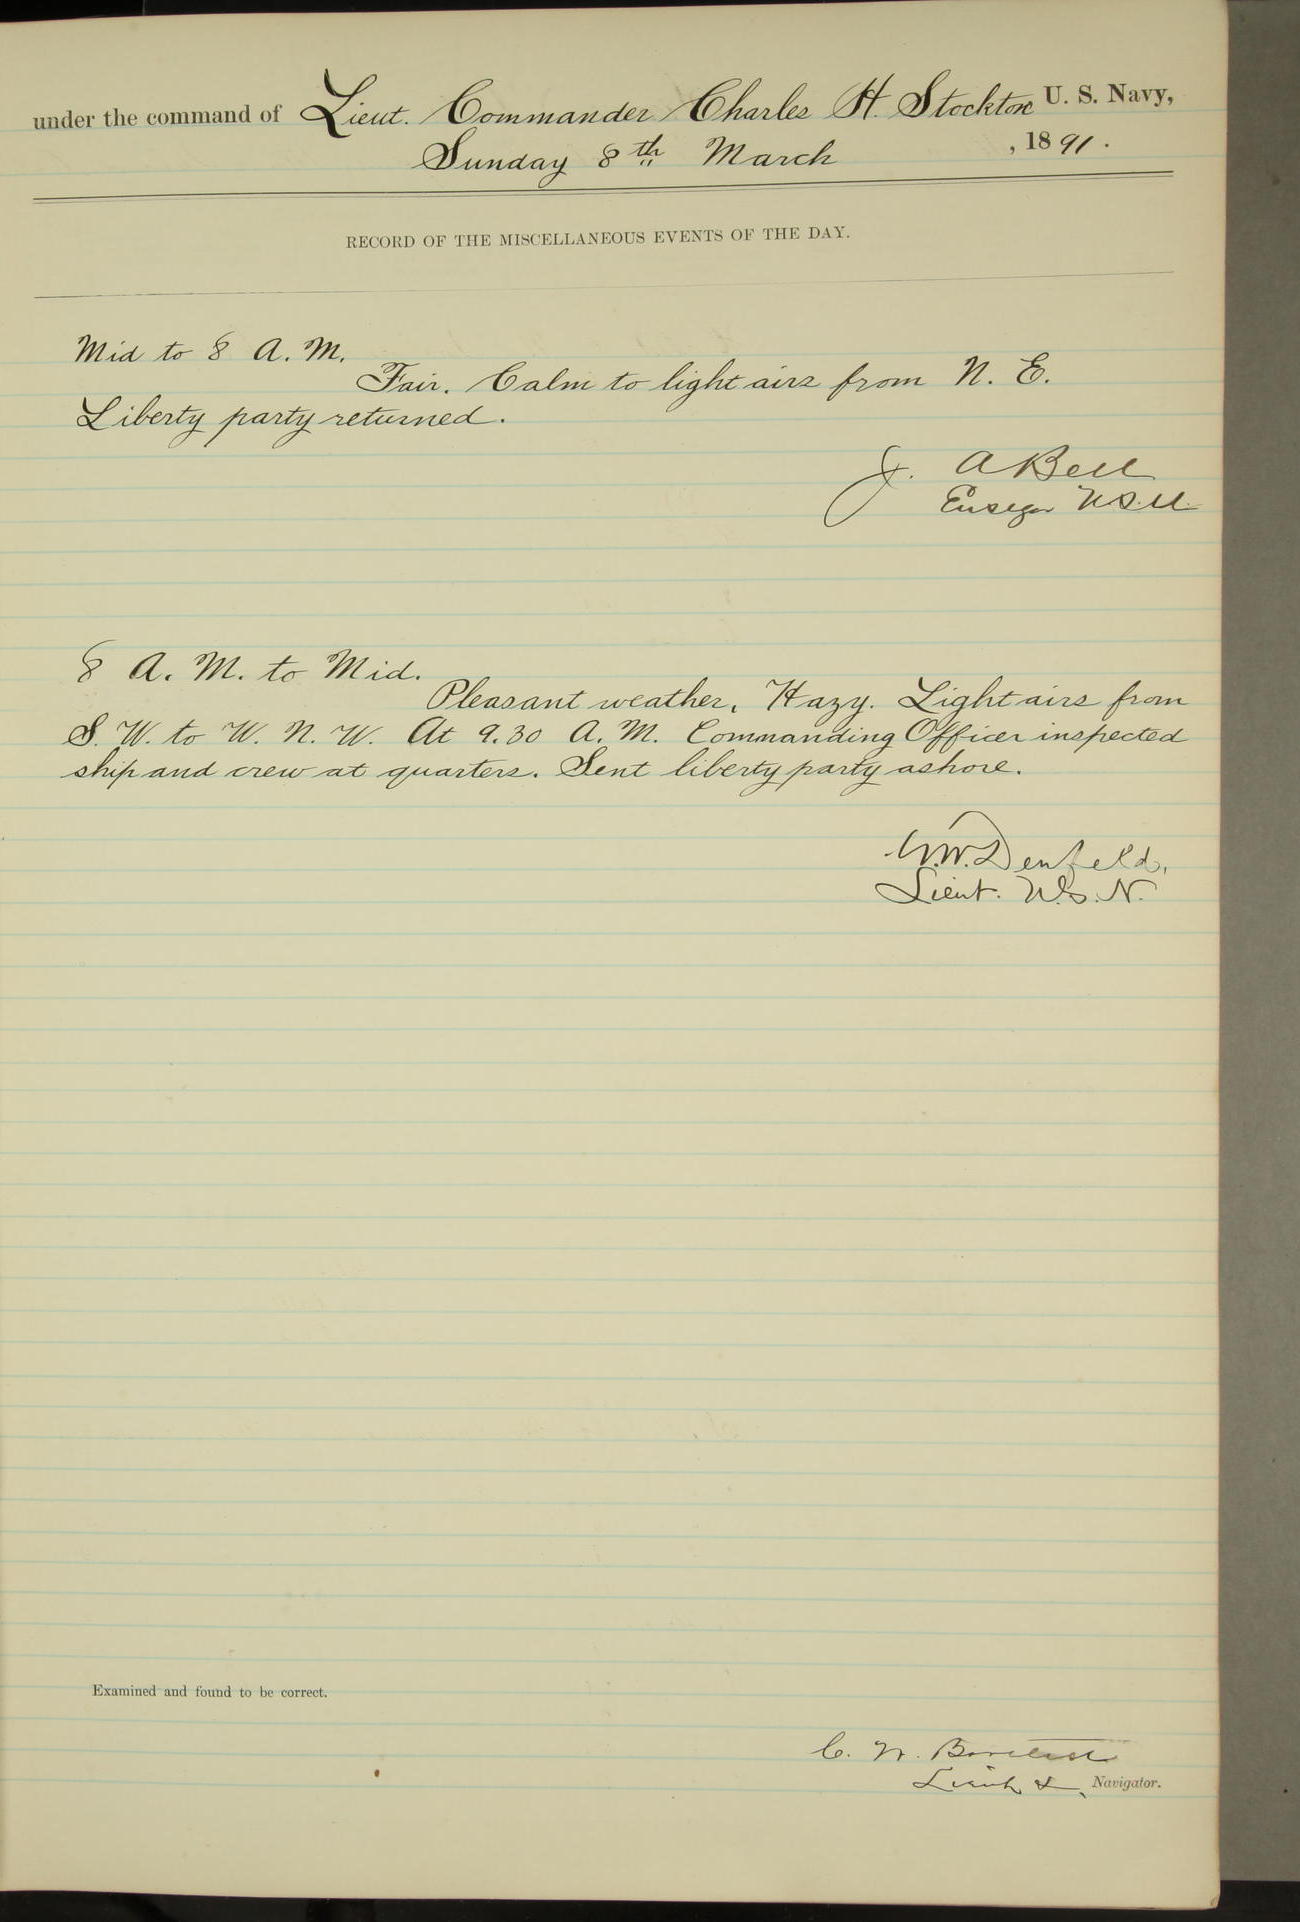 under the command of Lieut. Commander Charles H. Stockton U. S. Navy,
Sunday 8th March , 1891.
RECORD OF THE MISCELLANEOUS EVENTS OF THE DAY.
Mid to 8 A. M.
Fair. Calm to light airs from N. E.
Liberty party returned.
J. A Bell
Ensign U.S.N.
8 A. M. to Mid.
Pleasant weather, Hazy. Light airs from
S. W. to W. N. W. At 9.30 A. M. Commanding Officer inspected
ship and crew at quarters. Sent liberty party ashore.
Denfeld,
Lieut. U.S.N.
Examined and found to be correct.
C. W. Bartlett
Lieut & Navigator.